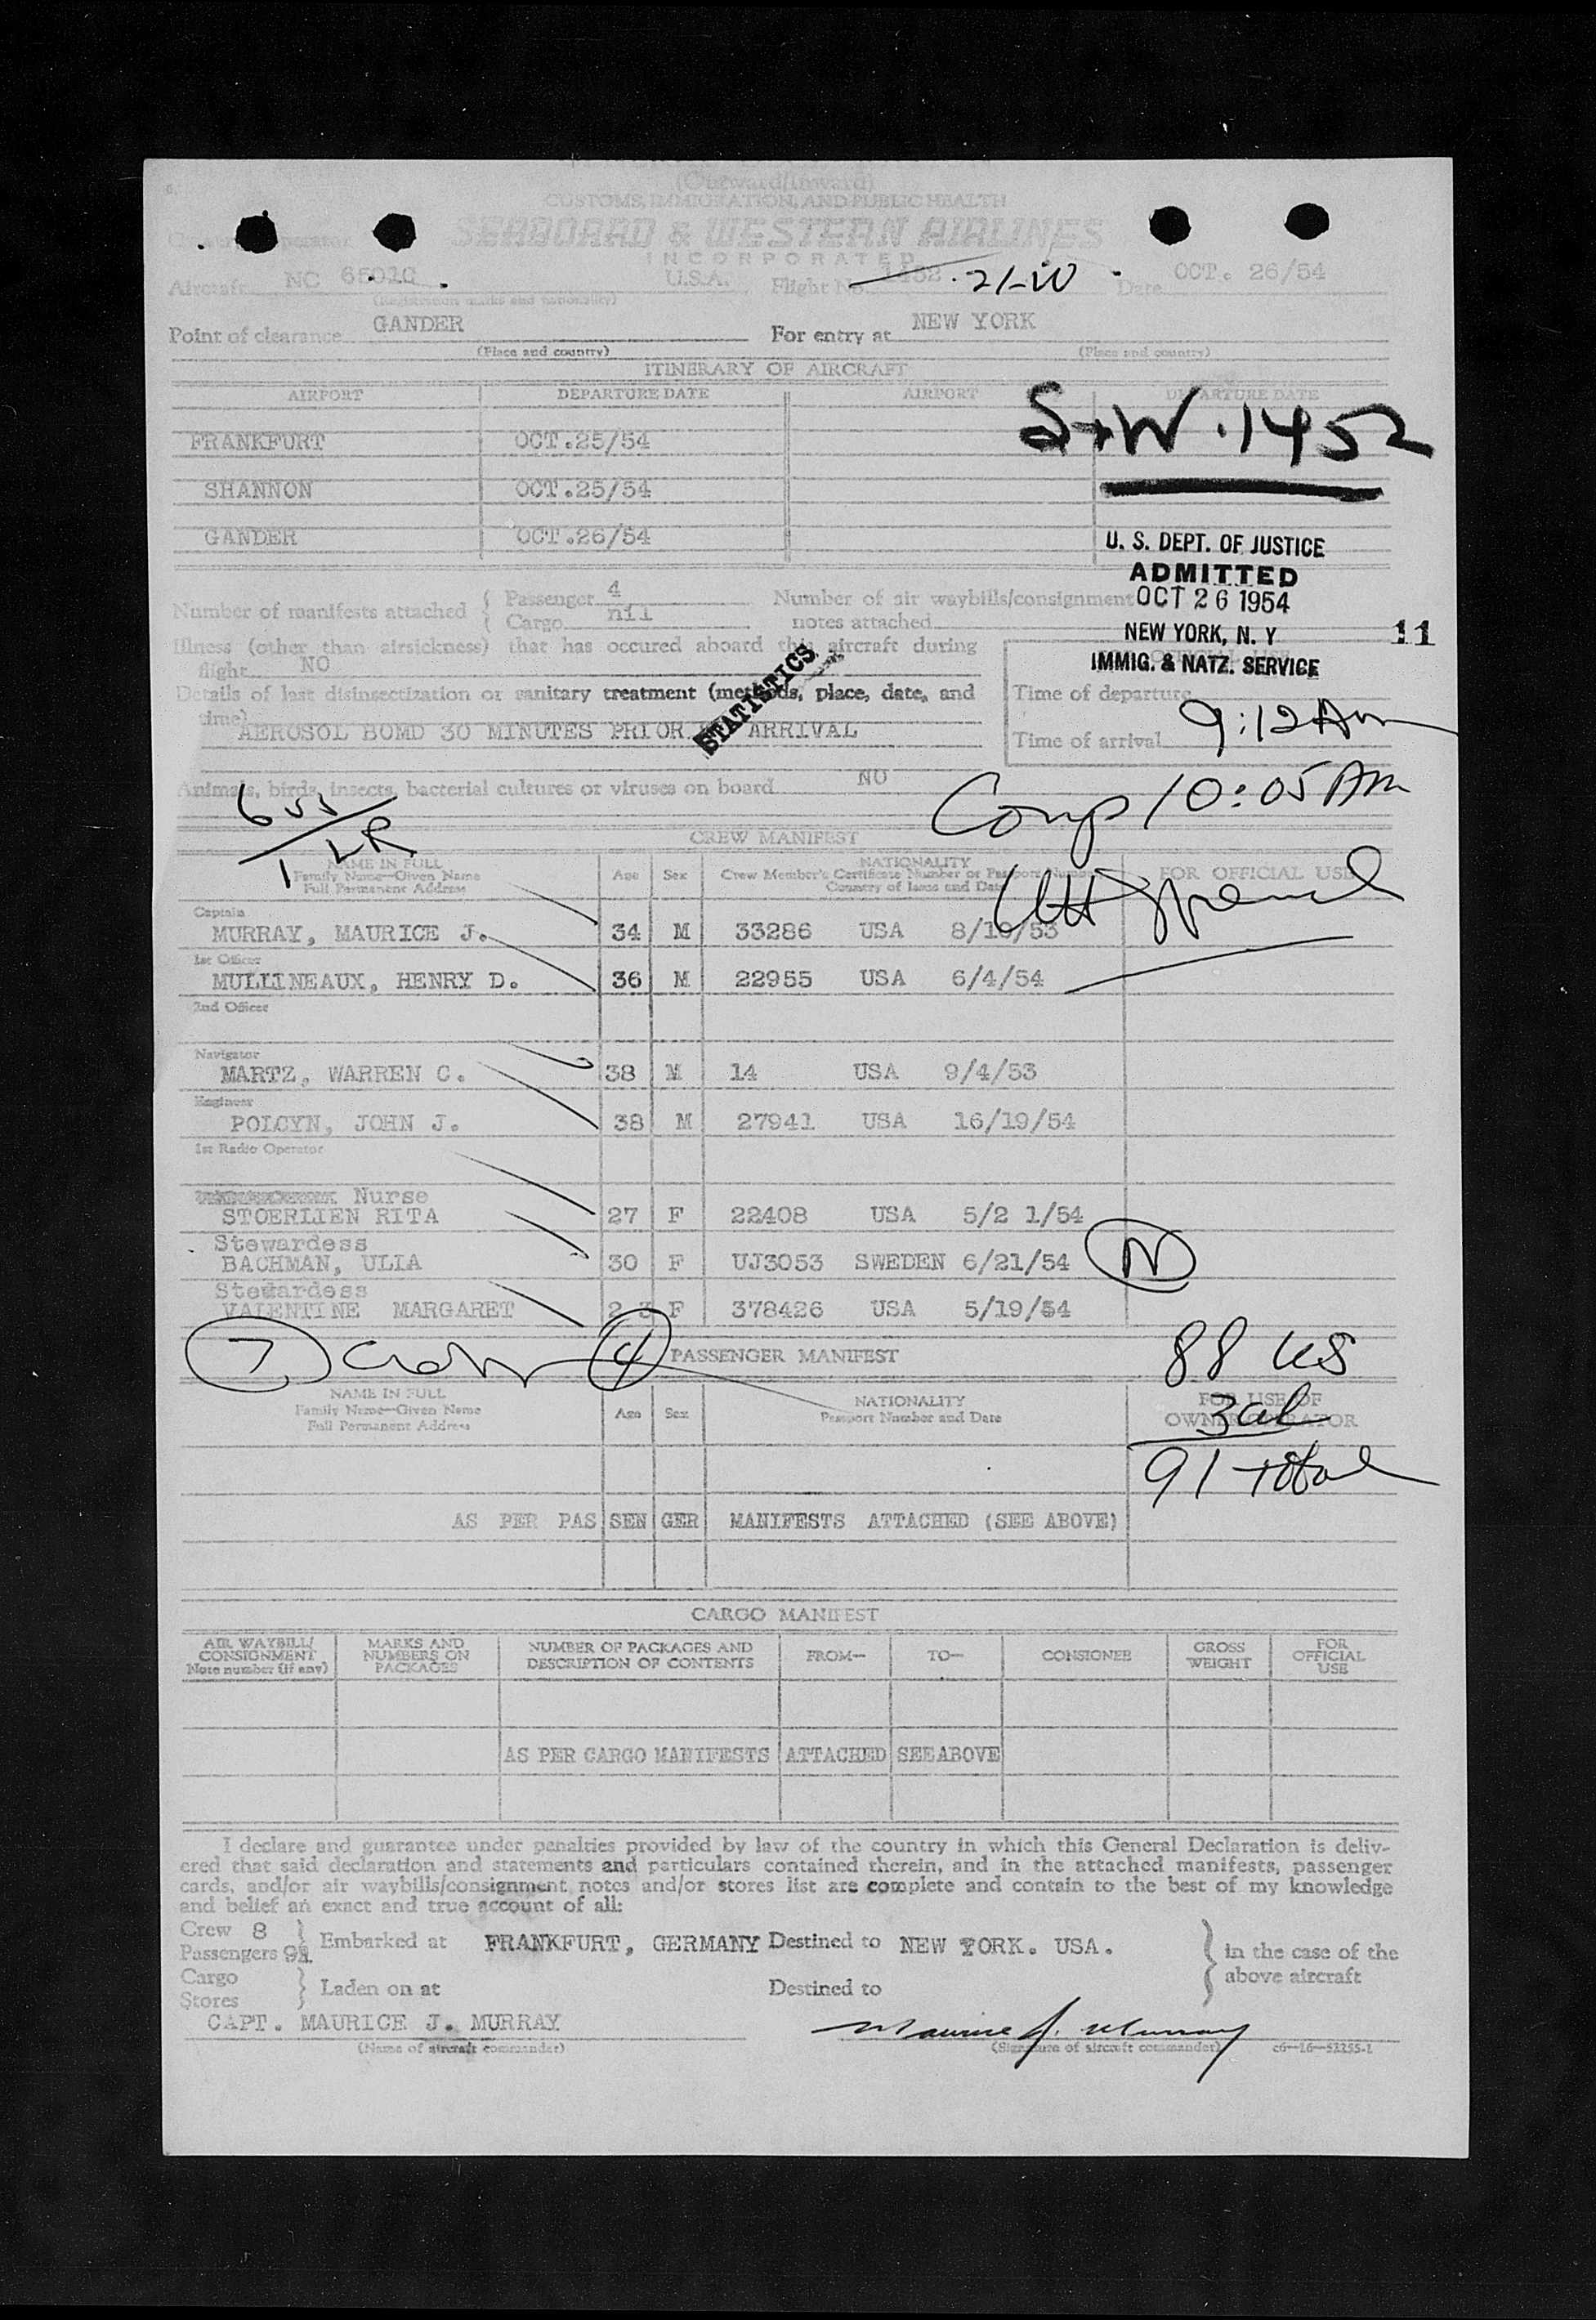 (Outward/Inward)
CUSTOMS, IMMIGRATION, AND PUBLIC HEALTH
SEABOARD & WESTERN AIRLINES
INCORPORATED
Aircraft NC 6501C U.S.A. Flight No. 1452 21-W Date OCT. 26/54
(Registration marks and nationality)
Point of clearance GANDER For entry at NEW YORK
(Place and country) (Place and country)
ITINERARY OF AIRCRAFT
AIRPORT DEPARTURE DATE AIRPORT DEPARTURE DATE
S+W.1452
FRANKFURT OCT.25/54
SHANNON OCT.25/54
GANDER OCT.26/54
U. S. DEPT. OF JUSTICE
ADMITTED
OCT 26 1954
NEW YORK, N. Y
IMMIG. & NATZ. SERVICE
11
Number of manifests attached { Passenger 4 Number of air waybills/consignment
Cargo nil notes attached
Illness (other than airsickness) that has occured aboard this aircraft during
flight NO
Details of last disinsectization or sanitary treatment (methods, place, date, and
time) AEROSOL BOMD 30 MINUTES PRIOR ARRIVAL
STATISTICS
Time of departure
Time of arrival 9:12 Am
Animals, birds, insects, bacterial cultures or viruses on board NO
Comp 10:05 AM
1 LR
CREW MANIFEST
NAME IN FULL
Family Name—Given Name
Full Permanent Address
Age Sex
NATIONALITY
Crew Member's Certificate Number or Passport Number
Country of Issue and Date
FOR OFFICIAL USE
Captain
MURRAY, MAURICE J. 34 M 33286 USA 8/10/53
1st Officer
MULLINEAUX, HENRY D. 36 M 22955 USA 6/4/54
2nd Officer
Navigator
MARTZ, WARREN C. 38 M 14 USA 9/4/53
Engineer
POLCYN, JOHN J. 38 M 27941 USA 16/19/54
1st Radio Operator
Nurse
STOERLIEN RITA 27 F 22408 USA 5/2 1/54
Stewardess
BACHMAN, ULIA 30 F UJ3053 SWEDEN 6/21/54 N
Stewardess
VALENTINE MARGARET 2 3 F 378426 USA 5/19/54
7 4 PASSENGER MANIFEST
88 US
3 al
91 total
NAME IN FULL
Family Name—Given Name
Full Permanent Address
Age Sex
NATIONALITY
Passport Number and Date
FOR USE OF
OWNER OPERATOR
AS PER PAS SEN GER MANIFESTS ATTACHED (SEE ABOVE)
CARGO MANIFEST
AIR WAYBILL/
CONSIGNMENT
Note number (if any)
MARKS AND
NUMBERS ON
PACKAGES
NUMBER OF PACKAGES AND
DESCRIPTION OF CONTENTS
FROM— TO— CONSIGNEE
GROSS
WEIGHT
FOR
OFFICIAL
USE
AS PER CARGO MANIFESTS ATTACHED SEE ABOVE
I declare and guarantee under penalties provided by law of the country in which this General Declaration is deliv-
ered that said declaration and statements and particulars contained therein, and in the attached manifests, passenger
cards, and/or air waybills/consignment notes and/or stores list are complete and contain to the best of my knowledge
and belief an exact and true account of all:
Crew 8
Passengers 91 } Embarked at FRANKFURT, GERMANY Destined to NEW YORK. USA. } in the case of the
above aircraft
Cargo
Stores } Laden on at Destined to
CAPT. MAURICE J. MURRAY Maurice J. Murray
(Name of aircraft commander) (Signature of aircraft commander) c6—16—53255-1